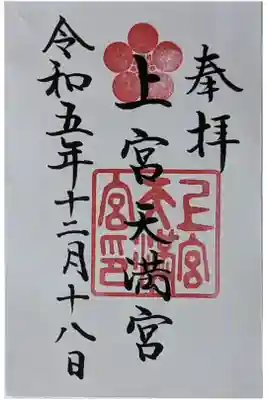 奉拝
上宮天満宮
上宮天満宮印
令和五年十二月十八日